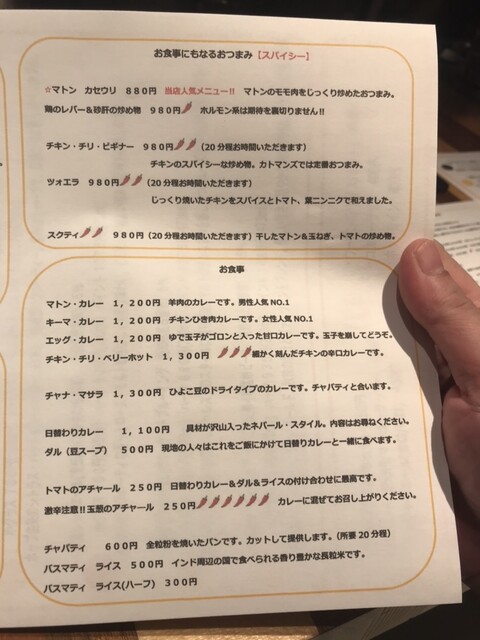 お食事にもなるおつまみ【スパイシー】
☆マトン カセウリ 880円 当店人気メニュー!! マトンのモモ肉をじっくり炒めたおつまみ。
鶏のレバー＆砂肝の炒め物 980円 ホルモン系は期待を裏切りません!!
チキン・チリ・ビギナー 980円 (20分程お時間いただきます)
チキンのスパイシーな炒め物。カトマンズでは定番おつまみ。
ツォエラ 980円 (20分程お時間いただきます)
じっくり焼いたチキンをスパイスとトマト、葉ニンニクで和えました。
スクティ 980円 (20分程お時間いただきます) 干したマトン＆玉ねぎ、トマトの炒め物。
お食事
マトン・カレー 1,200円 羊肉のカレーです。男性人気NO.1
キーマ・カレー 1,200円 チキンひき肉カレーです。女性人気NO.1
エッグ・カレー 1,200円 ゆで玉子がゴロンと入った甘口カレーです。玉子を崩してどうぞ。
チキン・チリ・ベリーホット 1,300円 細かく刻んだチキンの辛口カレーです。
チャナ・マサラ 1,300円 ひよこ豆のドライタイプのカレーです。チャパティと合います。
日替わりカレー 1,100円 具材が沢山入ったネパール・スタイル。内容はお尋ねください。
ダル（豆スープ） 500円 現地の人々はこれをご飯にかけて日替りカレーと一緒に食べます。
トマトのアチャール 250円 日替わりカレー＆ダル＆ライスの付け合わせに最高です。
激辛注意!!玉葱のアチャール 250円 カレーに混ぜてお召し上がりください。
チャパティ 600円 全粒粉を焼いたパンです。カットして提供します。(所要20分程)
バスマティ ライス 500円 インド周辺の国で食べられる香り豊かな長粒米です。
バスマティ ライス(ハーフ) 300円